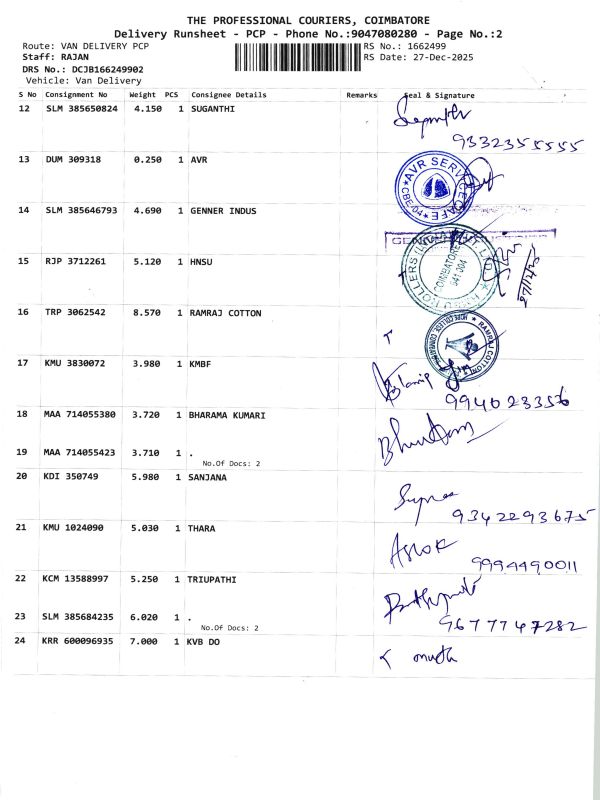 THE PROFESSIONAL COURIERS, COIMBATORE
Delivery Runsheet - PCP - Phone No.:9047080280 - Page No.:2
Route: VAN DELIVERY PCP RS No.: 1662499
Staff: RAJAN RS Date: 27-Dec-2025
DRS No.: DCJB166249902
Vehicle: Van Delivery
S No Consignment No Weight PCS Consignee Details Remarks Seal & Signature
12 SLM 385650824 4.150 1 SUGANTHI
9332355555
13 DUM 309318 0.250 1 AVR
AVR SERVICE CAFE CBE-04
14 SLM 385646793 4.690 1 GENNER INDUS
15 RJP 3712261 5.120 1 HNSU
COIMBATORE
641 004
27/12/25
16 TRP 3062542 8.570 1 RAMRAJ COTTON
RAMRAJ COTTON
17 KMU 3830072 3.980 1 KMBF
9940023356
18 MAA 714055380 3.720 1 BHARAMA KUMARI
19 MAA 714055423 3.710 1 .
No.Of Docs: 2
20 KDI 350749 5.980 1 SANJANA
9342293675
21 KMU 1024090 5.030 1 THARA
Ashok
9994490011
22 KCM 13588997 5.250 1 TRIUPATHI
23 SLM 385684235 6.020 1 .
9677747282
No.Of Docs: 2
24 KRR 600096935 7.000 1 KVB DO